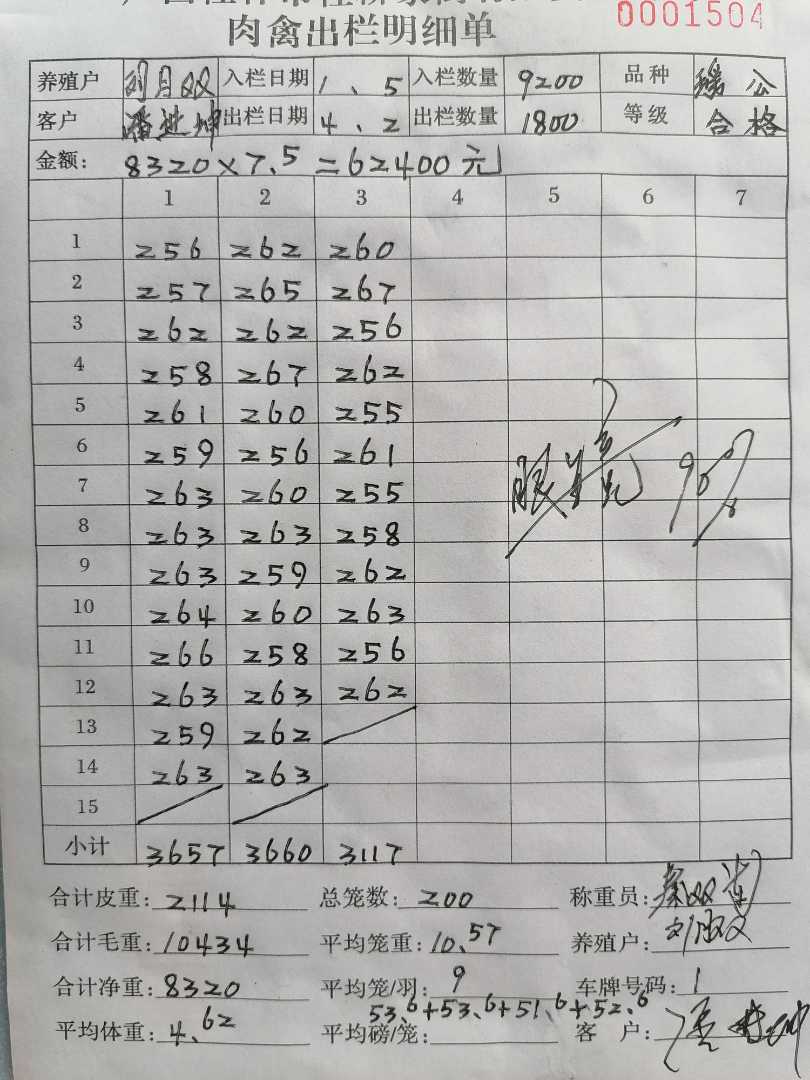 0001504
肉禽出栏明细单
养殖户 入栏日期 1、5 入栏数量 9200 品种 瑶公
客户 潘进坤 出栏日期 4、2 出栏数量 1800 等级 合格
金额: 8320×7.5=62400元
1 2 3 4 5 6 7
1 256 262 260
2 257 265 267
3 262 262 256
4 258 267 262
5 261 260 255
6 259 256 261
7 263 260 255
8 263 263 258
9 263 259 262
10 264 260 263
11 266 258 256
12 263 263 262
13 259 262
14 263 263
15
小计 3657 3660 3117
合计皮重: 2114 总笼数: 200 称重员:
合计毛重: 10434 平均笼重: 10.57 养殖户:
合计净重: 8320 平均笼/羽: 9 车牌号码: 1
53.6+53.6+51.6+52.6
平均体重: 4.62 平均磅/笼: 客户: